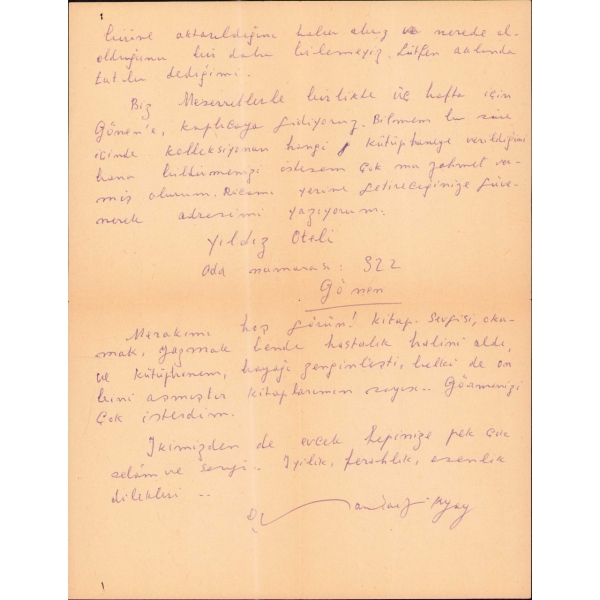 birine aktarıldığını haber alırız ve nerede ol-
olduğunu biz daha bilemeyiz. Lütfen aklında
tut bu dediğimi.
Biz Meserretlerle birlikte üç hafta için
Gönen'e, kaplıcaya gidiyoruz. Bilmem bu süre
içinde kolleksiyonun hangi kütüphaneye verildiğini
bana bildirmenizi istesem çok mu zahmet ver-
miş olurum. Ricamı yerine getireceğinize güve-
nerek adresimi yazıyorum.
Yıldız Oteli
Oda numarası: 322
Gönen
Merakımı hoş görün! Kitap sevgisi, oku-
mak, yazmak bende hastalık halini aldı,
ve kütüphanem, bayağı zenginleşti, belki de on
bini aşmıştır kitaplarımın sayısı.. Görmenizi
çok isterdim.
İkimizden de evcek hepinize pek çok
selâm ve sevgi.. İyilik, ferahlık, esenlik
dilekleri ..